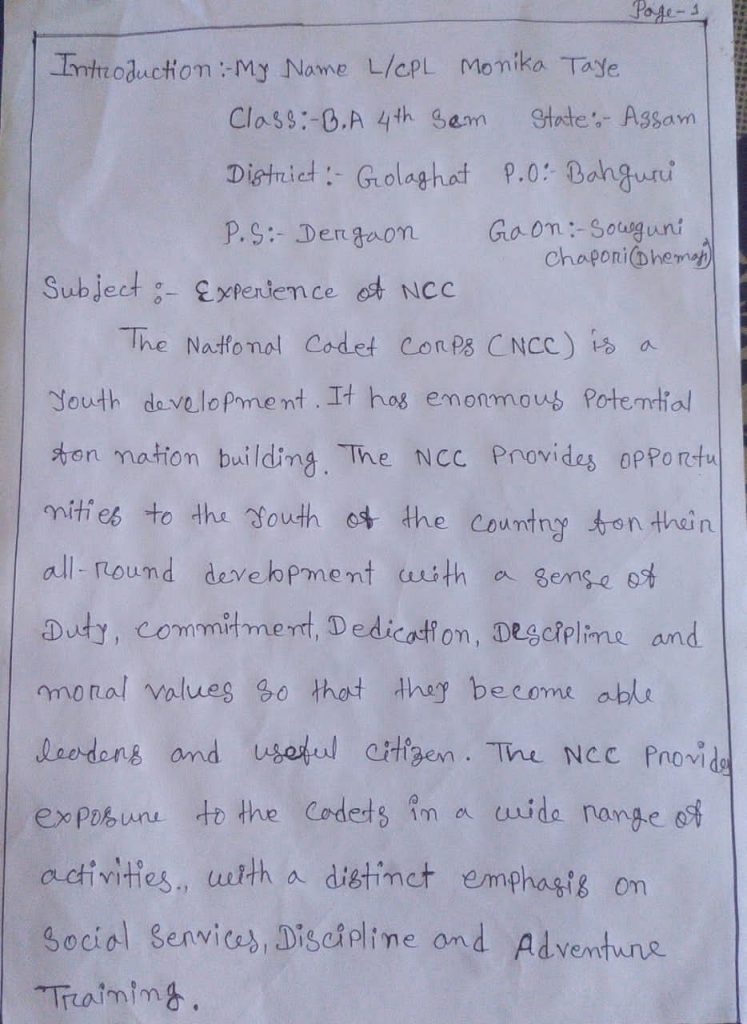 Page-1
Introduction :- My Name L/CPL Monika Taye
Class :- B.A 4th Sem State :- Assam
District :- Golaghat P.O :- Bahguri
P.S :- Dergaon Gaon :-
Chapori (Dhemaji)
Subject :- Experience of NCC
The National Cadet Corps (NCC) is a
Youth development. It has enormous Potential
for nation building. The NCC Provides opportu
nities to the Youth of the country for their
all-round development with a sense of
Duty, Commitment, Dedication, Descipline and
moral values so that they become able
leaders and useful citizen. The NCC Provides
exposure to the Cadets in a wide range of
activities., with a distinct emphasis on
Social Services, Discipline and Adventure
Training.